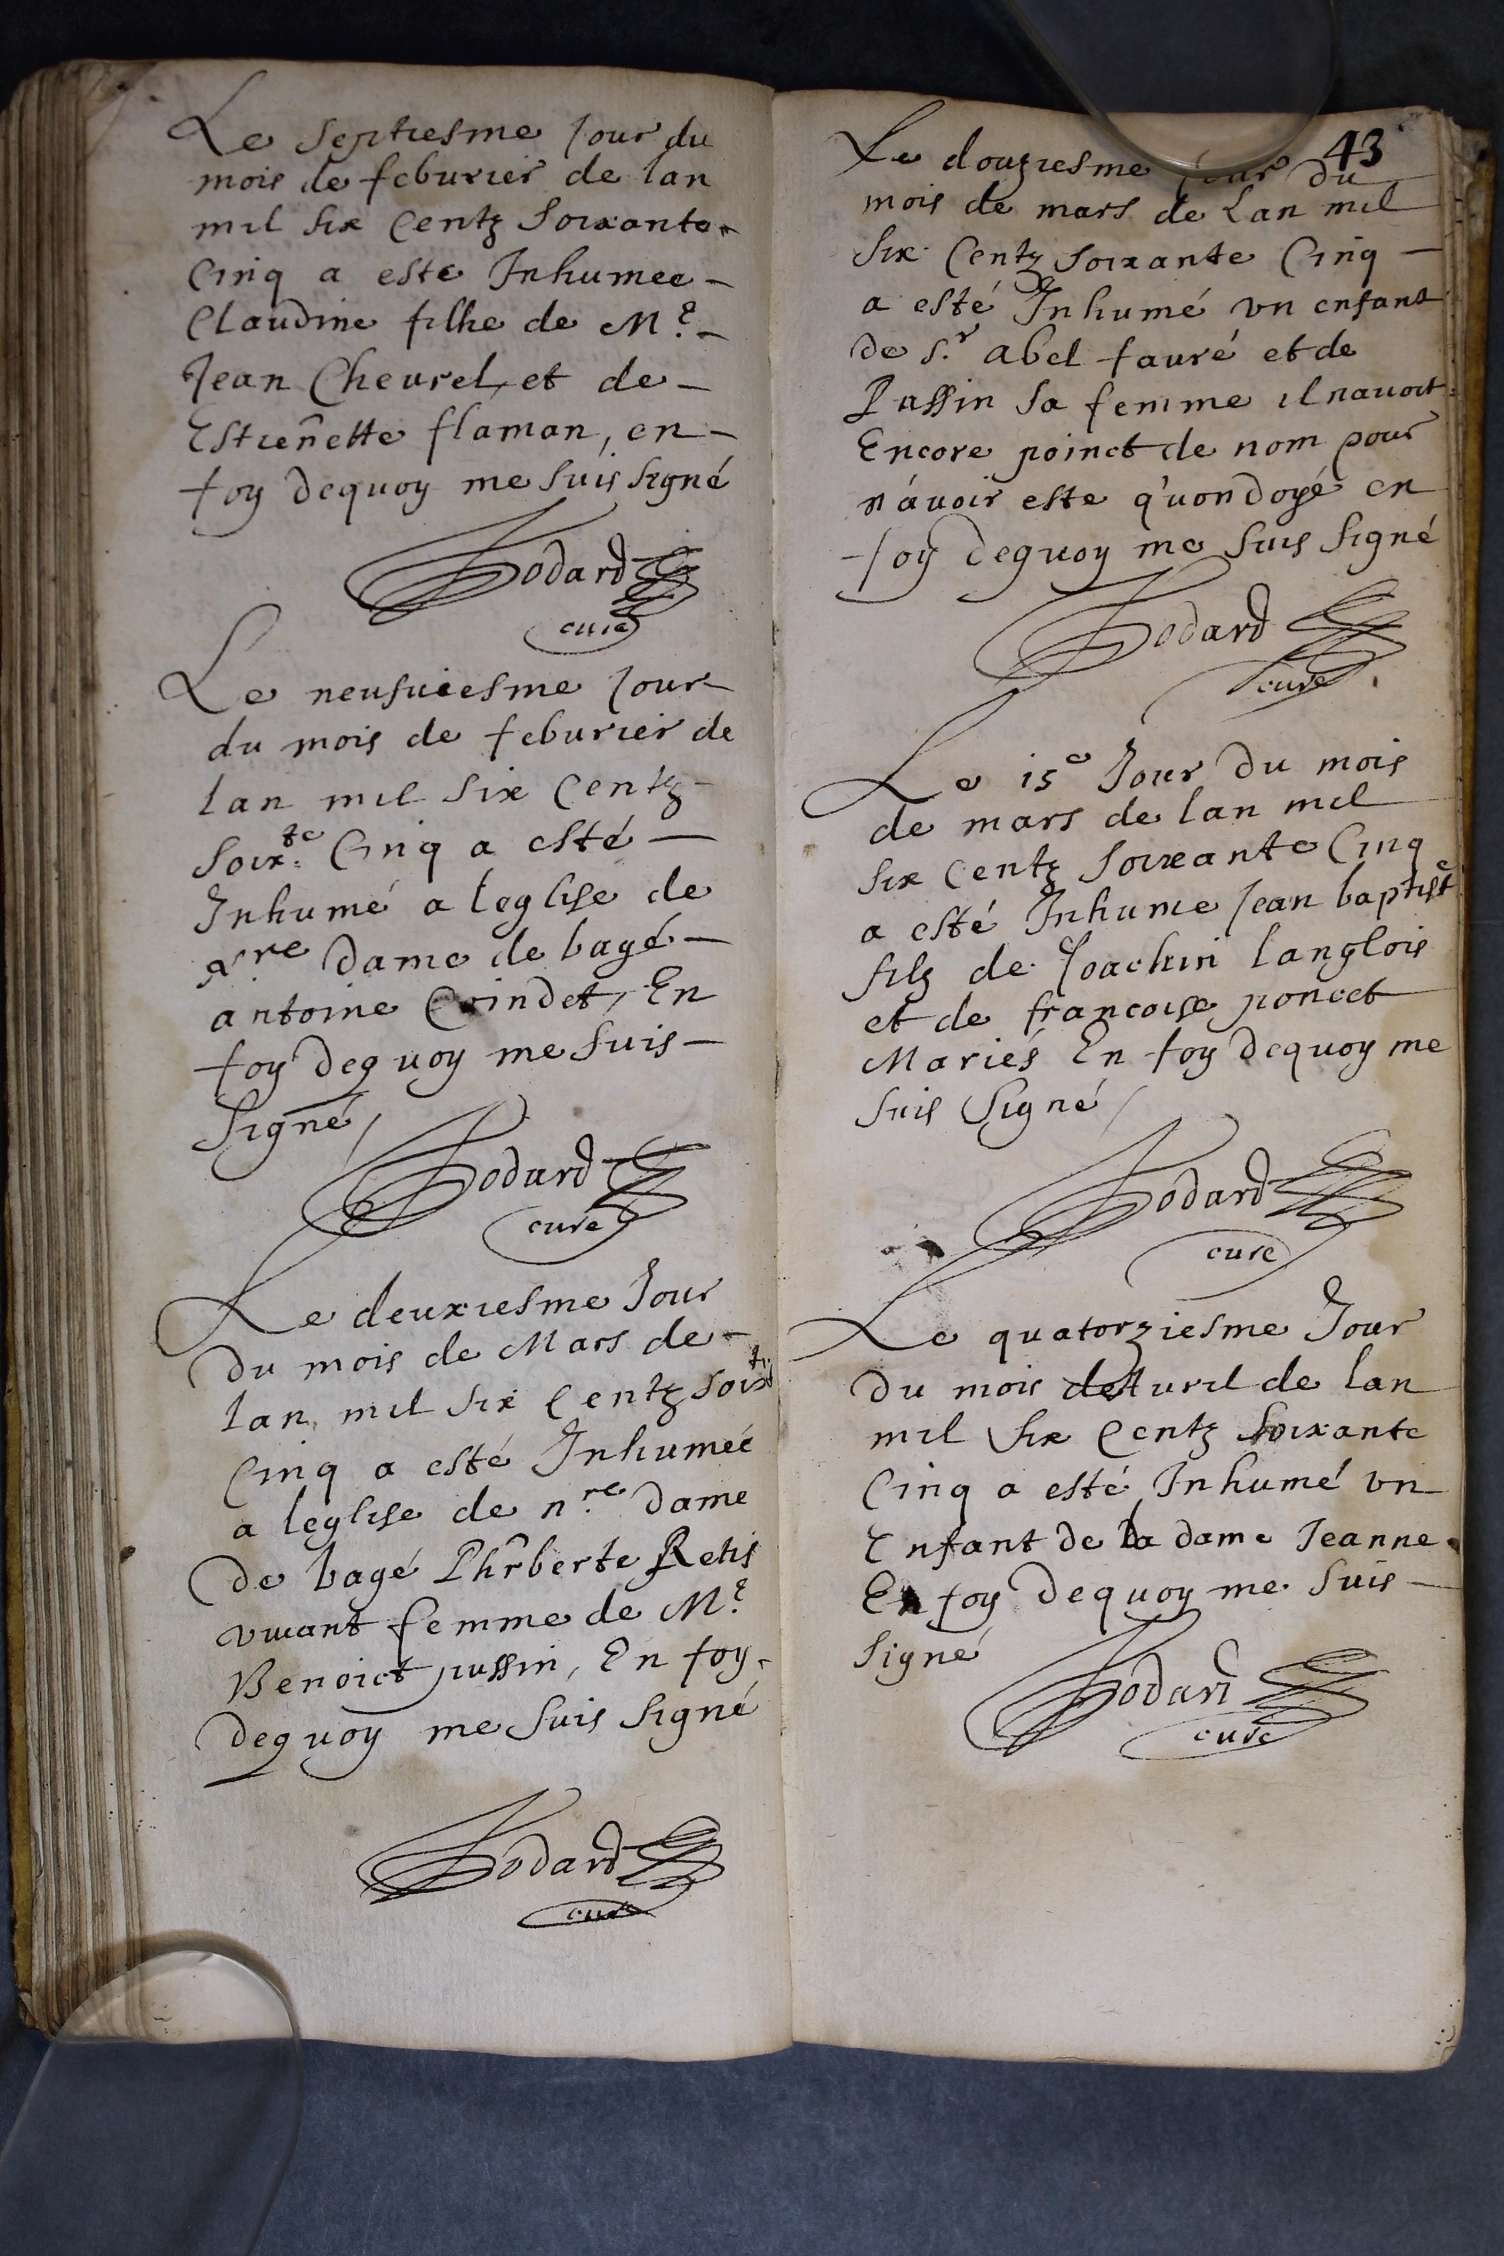 Le septiesme Jour du
mois de feburier de lan
mil six Centz Soixante
Cinq a este Inhumee
Claudine filhe de Me
Jean Cheurel, et de
Estienette flaman, en
foy dequoy me suis signé
Godard
curé
Le neufuiesme Jour
du mois de feburier de
lan mil six Centz
soixte Cinq a esté
Inhumé a leglise de
nre dame de bagé
antoine Coindet, En
foy dequoy me suis
signé,
Godard
curé
Le deuxiesme Jour
du mois de Mars de
lan mil six Centz soixte
Cinq a esté Inhumée
a leglise de nre dame
de bagé Phrberte Retis
viuant femme de Me
Benoict pussin, En foy
dequoy me suis signé
Godard
curé
43
Le douziesme Jour du
mois de mars de Lan mil
six Centz soixante Cinq
a esté Inhumé vn enfant
de Sr abel fauré et de
Pussin sa femme il nauoit
Encore poinct de nom pour
n'auoir este qu'ondoyé en
foy dequoy me suis signé
Godard
curé
Le 15e Jour du mois
de mars de lan mil
six Centz soixante Cinq
a esté Inhume Jean baptiste
filz de Joachin langlois
et de francoise poncet
Mariés En foy dequoy me
suis signé,
Godard
curé
Le quatorziesme Jour
du mois dAuril de lan
mil six Centz soixante
Cinq a esté Inhumé vn
Enfant de la dame Jeanne
En foy dequoy me suis
signé
Godard
curé